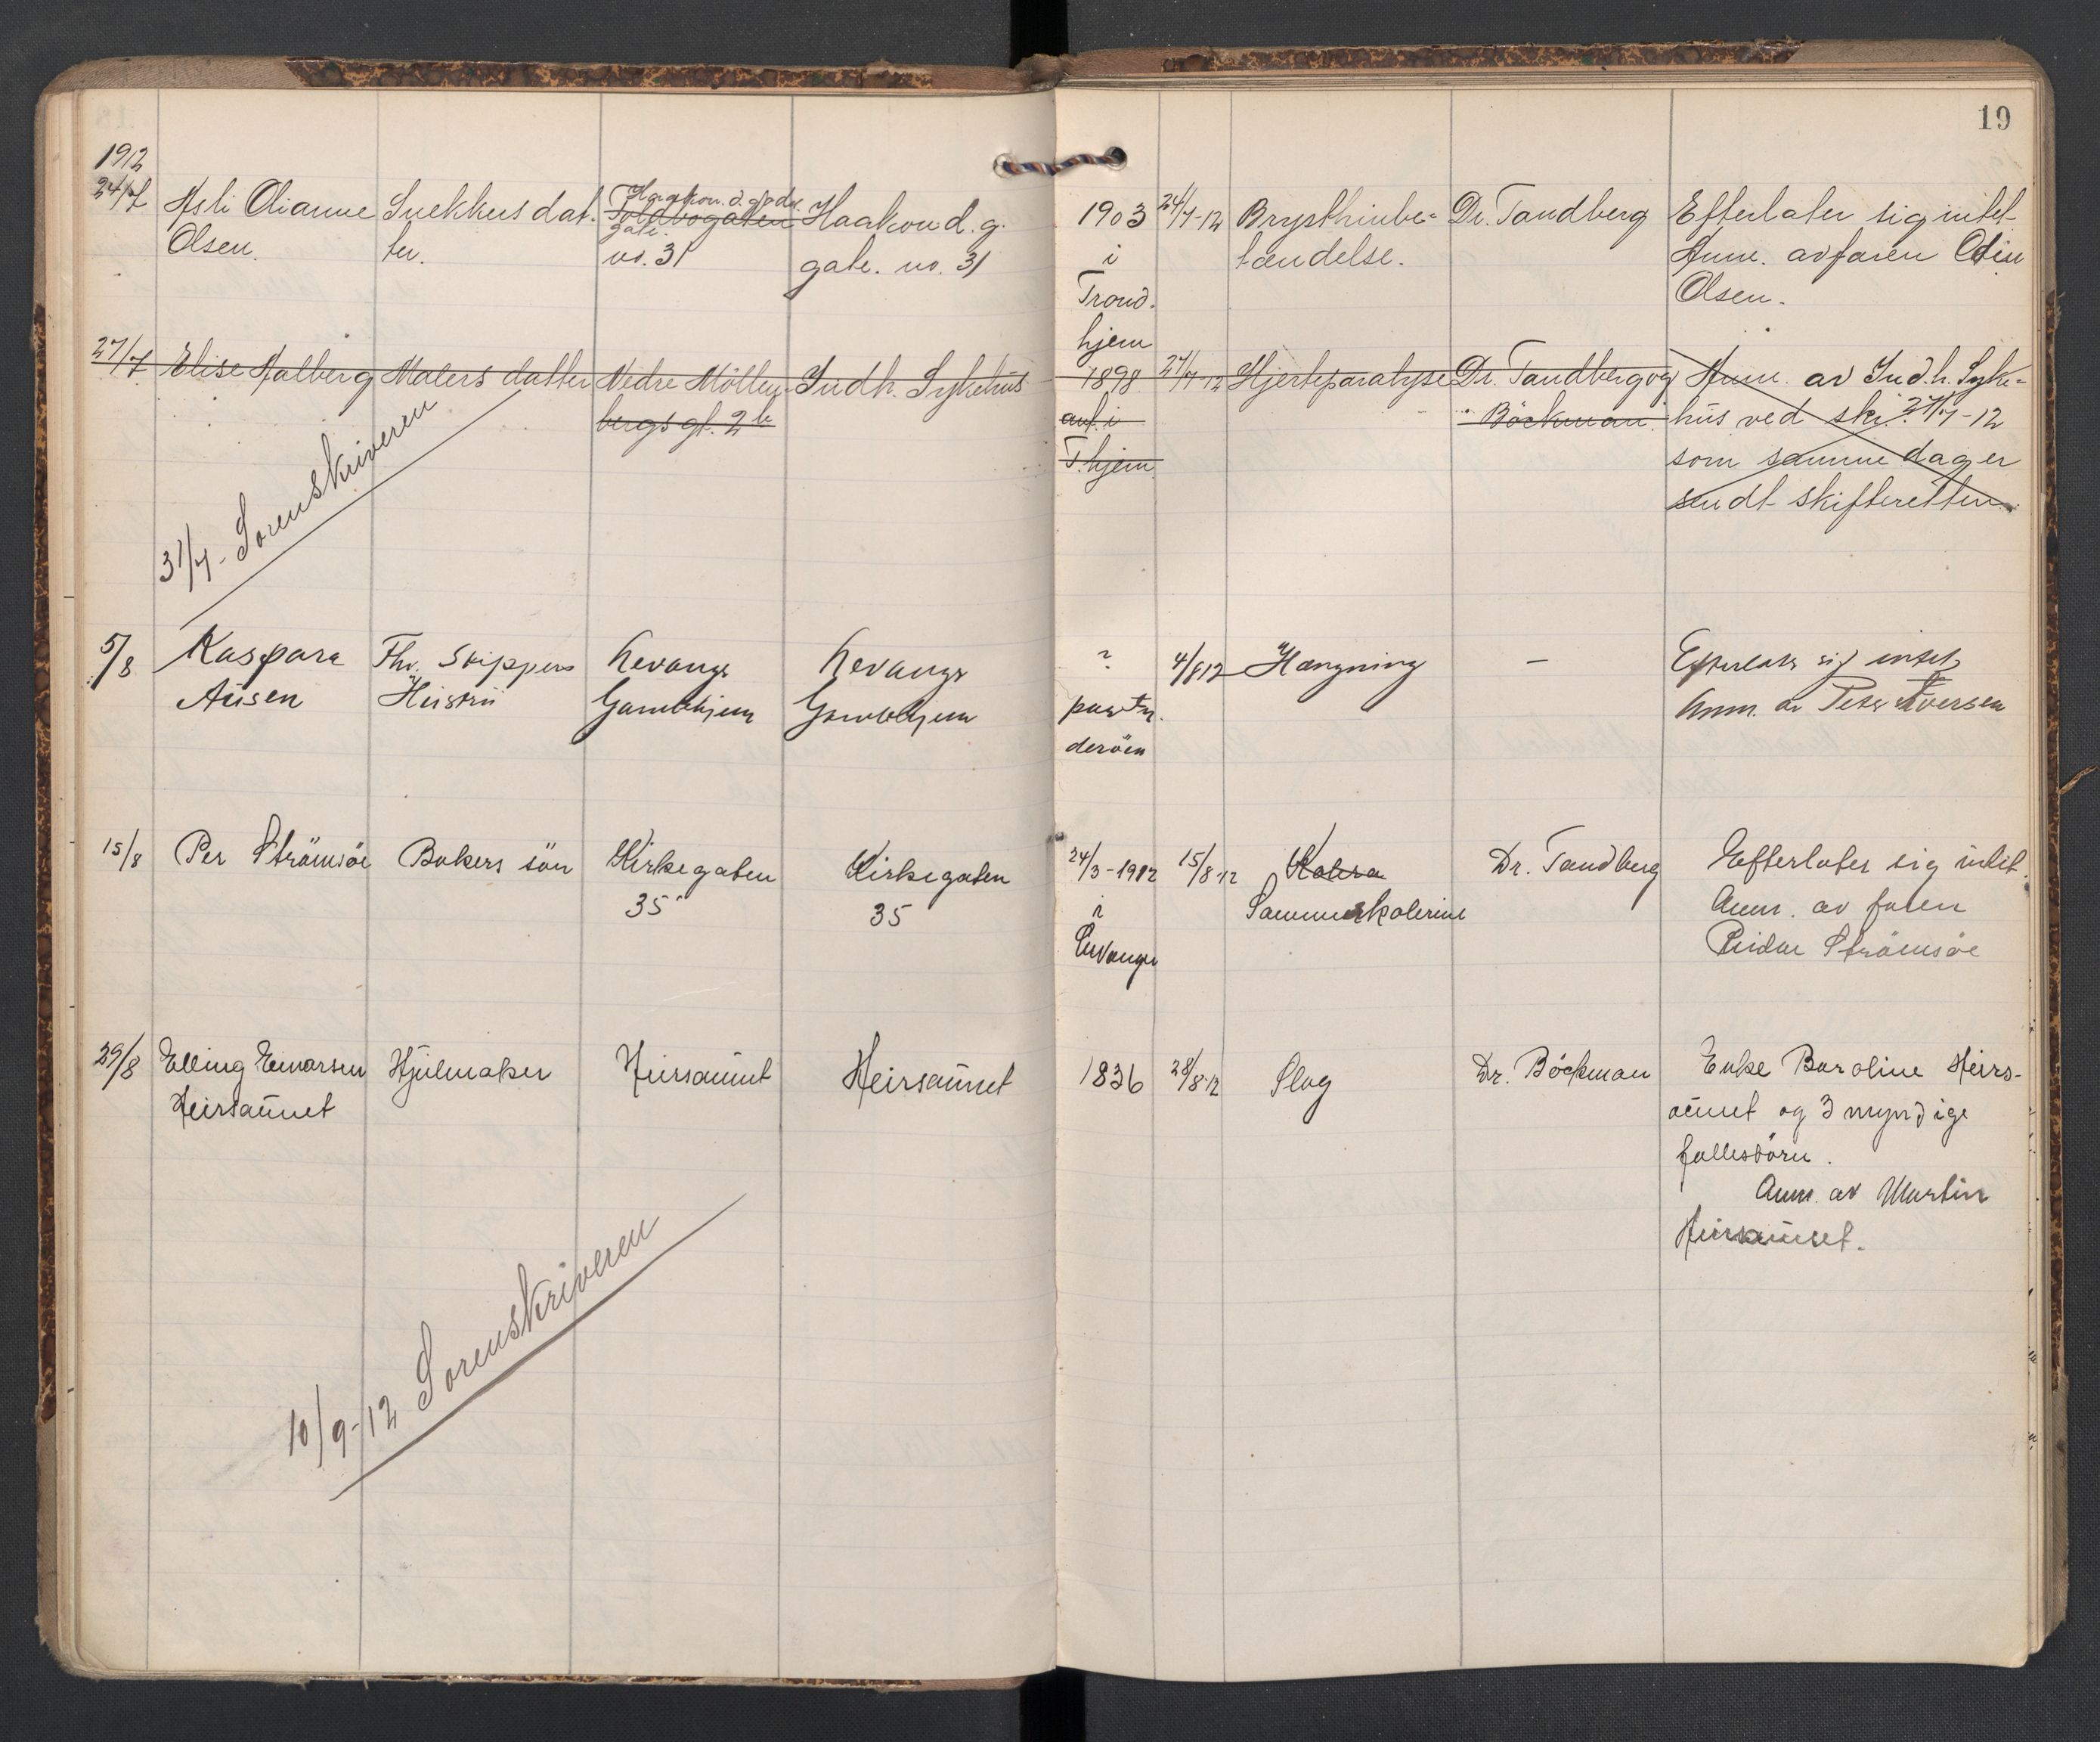 19
1912
24/7 Asli Olianne Snekkers dat- Haakon d. godes Haakon d. g. 1903 24/7-12 Brysthinbe- Dr. Tandberg Efterlater sig intet
Olsen. ter. Toldbogaten gate. no. 31 gate. no. 31 i tændelse. Anm. av faren Odin
Trond- Olsen.
hjem
27/7 Elise Aalberg Malers datter Nedre Möllen- Indh. Sykehus 1898 27/7-12 Hjerteparalyse Dr. Tandberg og Anm. av Indh. Syke-
bergs gt. 2 b anf. i Böckman. hus ved skr. 27/7-12
T.hjem som samme dag er
sendt skifteretten.
31/7 - Sorenskriveren
5/8 Kaspara Fhv. Skippers Levanger Levanger ? 4/8 12 Hængning - Efterlater sig intet
Hustru Gamlehjem Gamlehjem paa In- Anm. av Peter Iversen
deröen
15/8 Per Strömsöe Bakers sön Kirkegaten Kirkegaten 24/3-1912 15/8-12 Kolera Dr. Tandberg Efterlater sig intet.
35 35 i Sommerkolerine Anm. av faren
Levanger Reidar Strömsöe
29/8 Elling Einarsen Hjulmaker Heirsaunet Heirsaunet 1836 28/8-12 Slag Dr. Böckman Enke Baroline Heirs-
Heirsaunet aunet og 3 myndige
fællesbörn.
Anm. av Martin
Heirsaunet.
10/9-12 Sorenskriveren